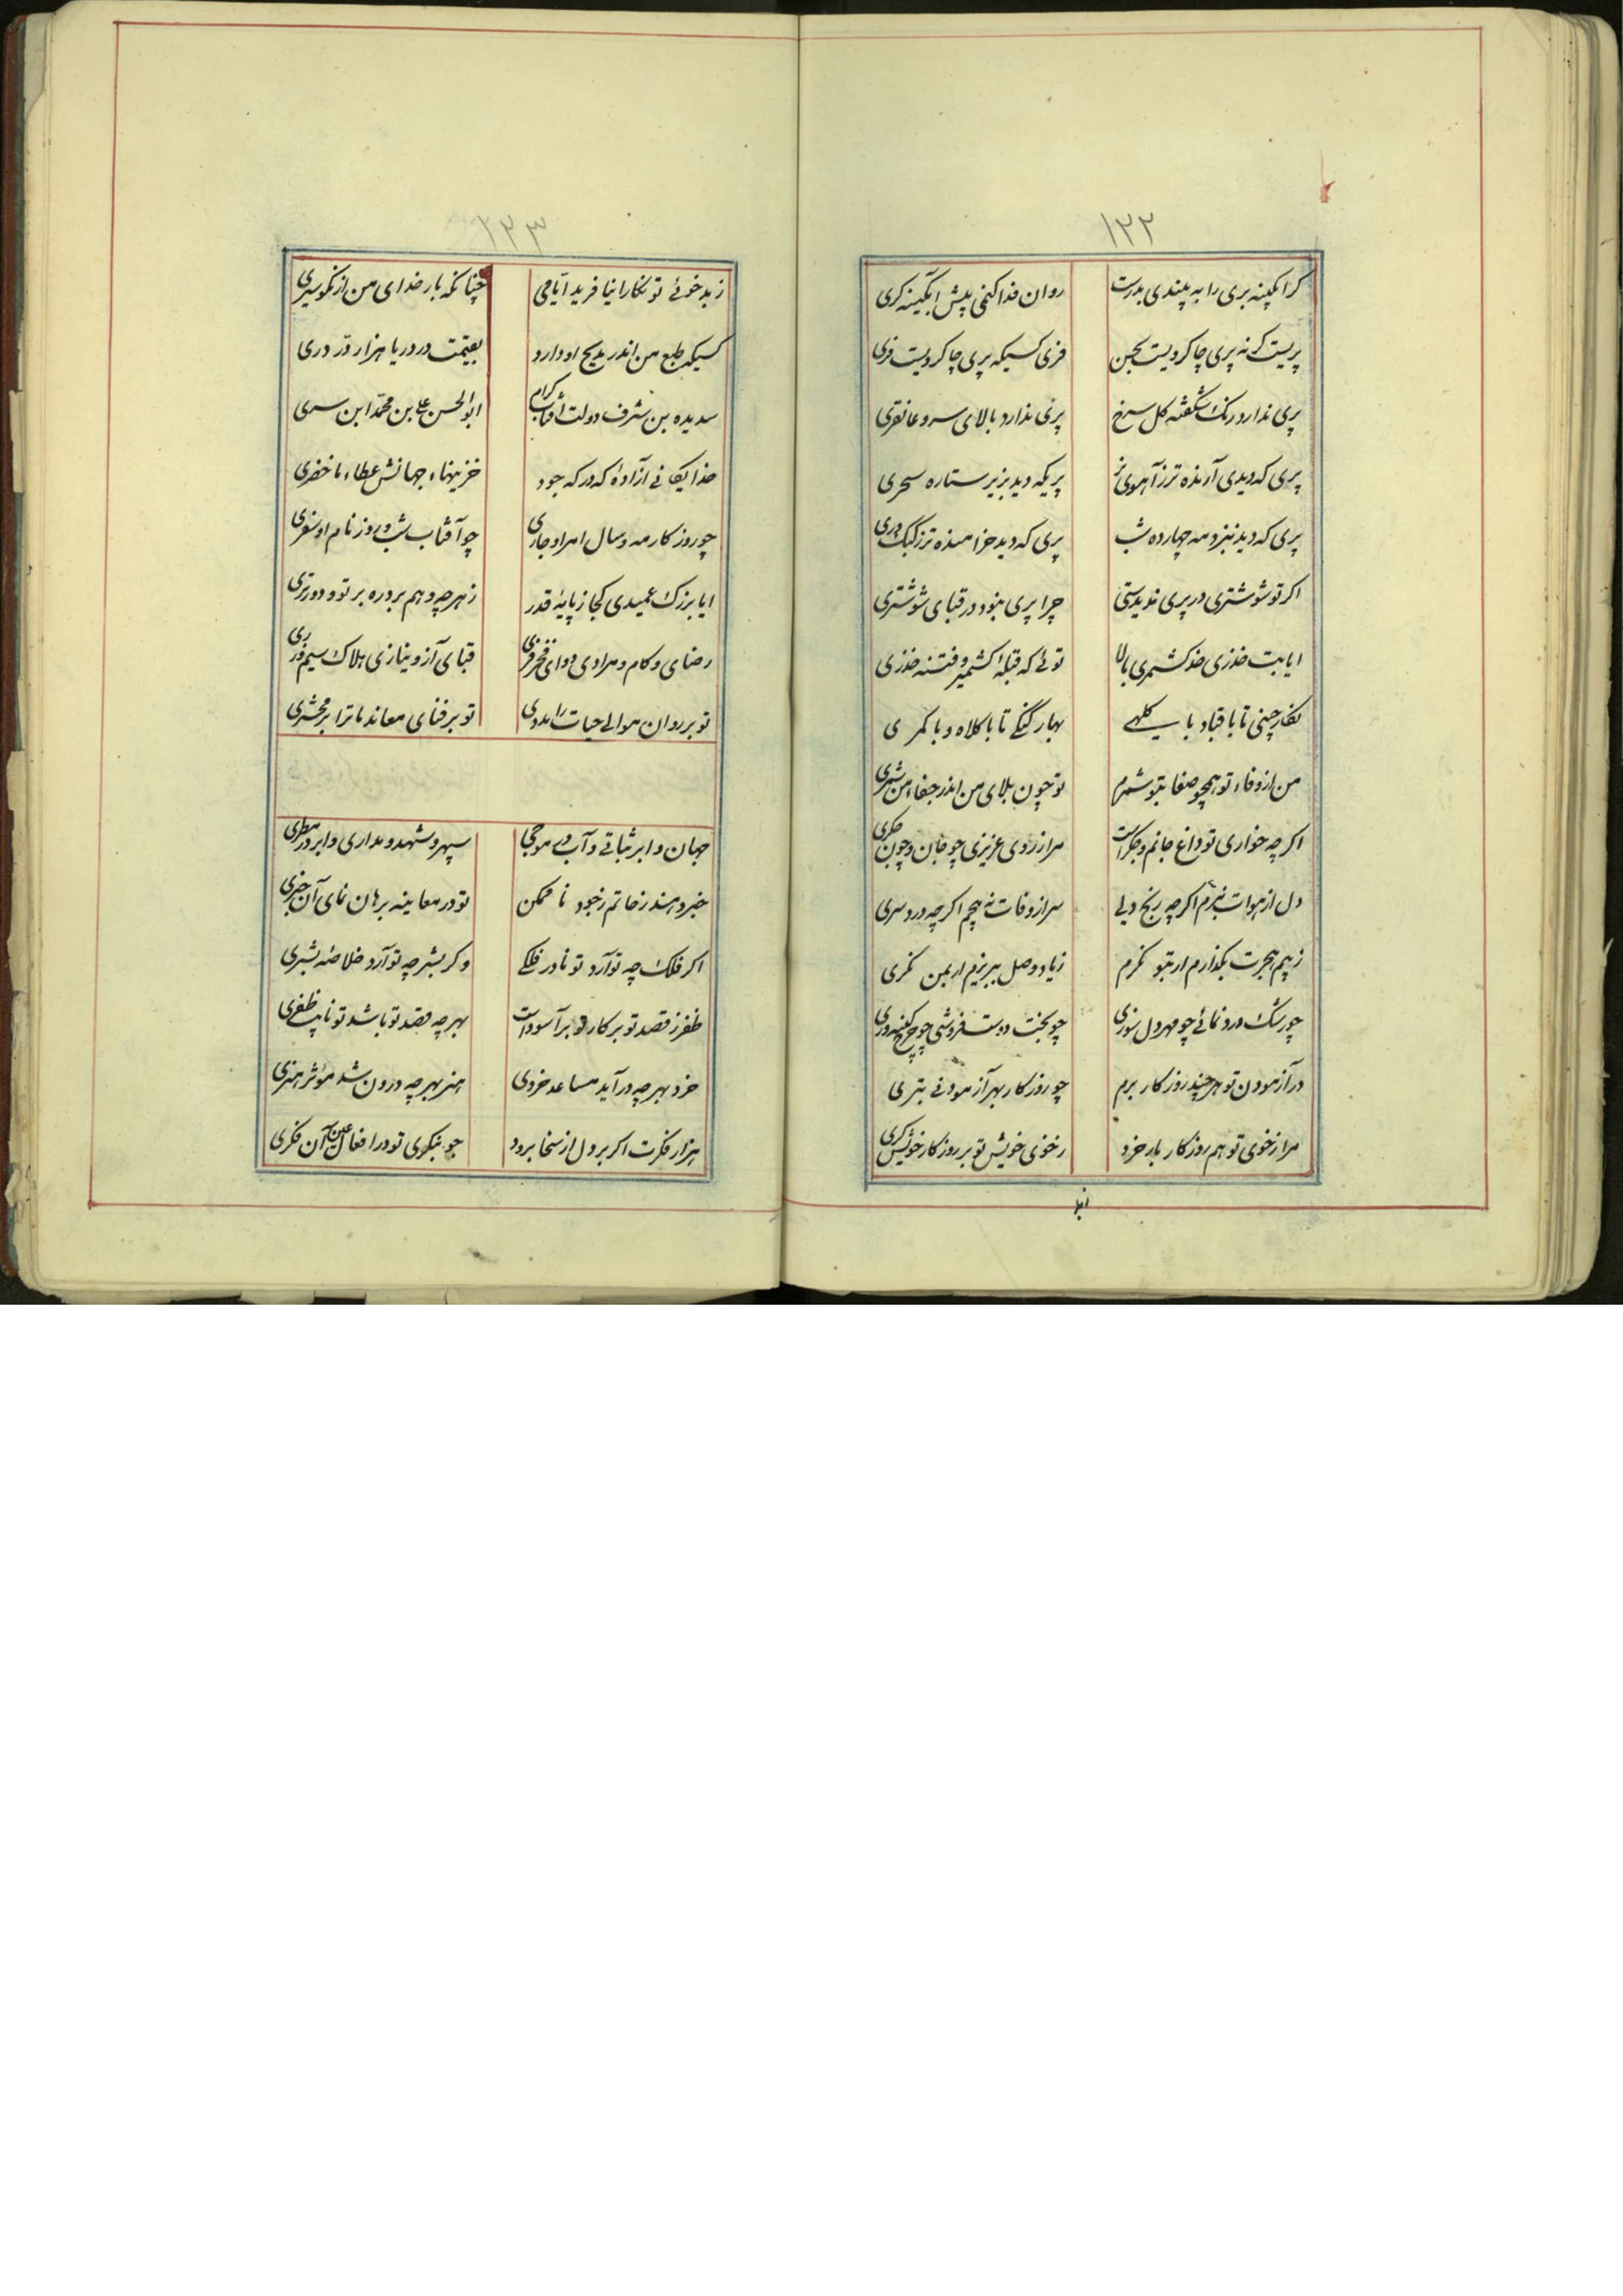 ۱۲۲
کرا بکینه بری را به پسندی بدرست روان فدا کنمی پیش آبگینه کری
پریست کر نه پری چا کر ویست بحسن فری کسیکه پری چا کر ویست فری
پری ندارد رنک شکفته کل سرخ پری ندارد بالای سرو غاتفری
پری که دیدی آرنده تر ز آهوی نر پریکه دید بزیر ستاره سحری
پری که دید نبزد مه چهارده شب پری که دید خرامنده تر ز کبک دری
اکر تو شوشتری در پری ندیدستی چرا پری بنود در قبای شوشتری
ایا بت خزری خد کشمری بالا توئی که قبلهٔ کشمیر و فتنه خزری
نگار چینی تا با قباد با کلهی بهار گنگی تا با کلاه و با کمری
من از وفاء تو همچو صفا بتو شمرم تو چون بلای من اندر جفاء من شمری
اکر چه خواری تو داغ جانم و جکر است مرا ز روی عزیزی چو جان و چون جکری
دل از هوات نبرّم اکر چه رنج دلی سر از وفات نه پیچم اکر چه درد سری
ز بیم هجرت بکذارم ار بتو نکرم ز یاد وصل ببریزم ار بمن نکری
چو رشک درد نمائی چو مهر دل سوزی چو بخت دوست فروشی چو چرخ کینه وری
در آزمودن تو هر چند روزکار برم چو روزکار بهر آزمودنی بتری
مرا ز خوی تو هم روزکار بار خرد ز خوی خویش تو بر روزکار خویش کری
۱۲۳
ز بد خوئی تو نکارا نیافرید ایامی چنانکه بار خدای من از نکو سیری
کسیکه طبع من اندر مدیح او دارد بقیمت در دریا هزار درّ دری
سدیده بن شرف دولت آفتاب کرام ابو الحسن علی بن محمد ابن سری
خدایکانی آزادهٔ که در که جود خزینهاء جهانش عطاء ما حضری
چو روزکار مه و سال امر او جاری چو آفتاب شب و روز نام او سفری
ایا بزرک عمیدی کجا ز پایهٔ قدر ز هر چه وهم برو ره برد تو دورتری
رضای و کام و مرادی دوای فخر فری قبای آز و نیازی هلاک سیم و زری
تو بر روان موالی حیات را مددی تو بر فنای معاند ما ترا بر محشری
جهان و ابر ثباتی و آب موجی سپهر و شهد و مداری و ابر و در مطری
خبر دهند ز خاتم ز خود ناممکن تو در معاینه برهان نمای آن خبری
اکر فلک چه تو آرد تو نادر فلکی و کر بشر چه تو آرد خلاصه بشری
ظفر ز قصد تو بر کار تو بر آسوداست بهر چه قصد تو باشد تو نایب ظفری
خرد بهر چه در آید مساعد خردی هنر بهر چه درون شد موثر هنری
هزار فکرت اکر بر دل از سخا برود چو بنکری تو در افعال عین آن فکری